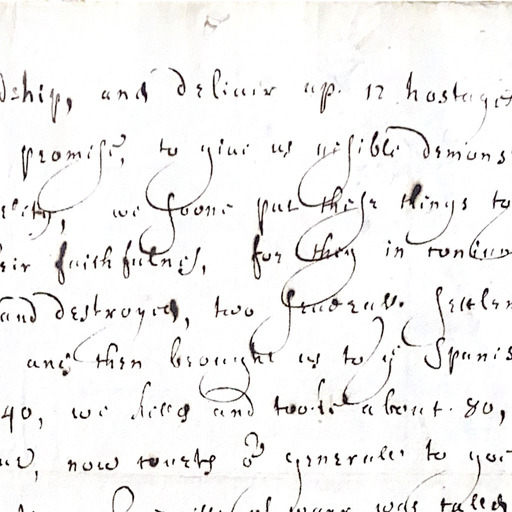 dship, and deliuer up. 12 hostages
promise, to giue us visible demons
elity, we soone put these things to
eir faithfulnes, for they in coniun
and destroyed, two seuerall. Setlem
and then brought us to ye Spanis
40, we kiled and tooke about. 80,
now couets or generall to goe
was called